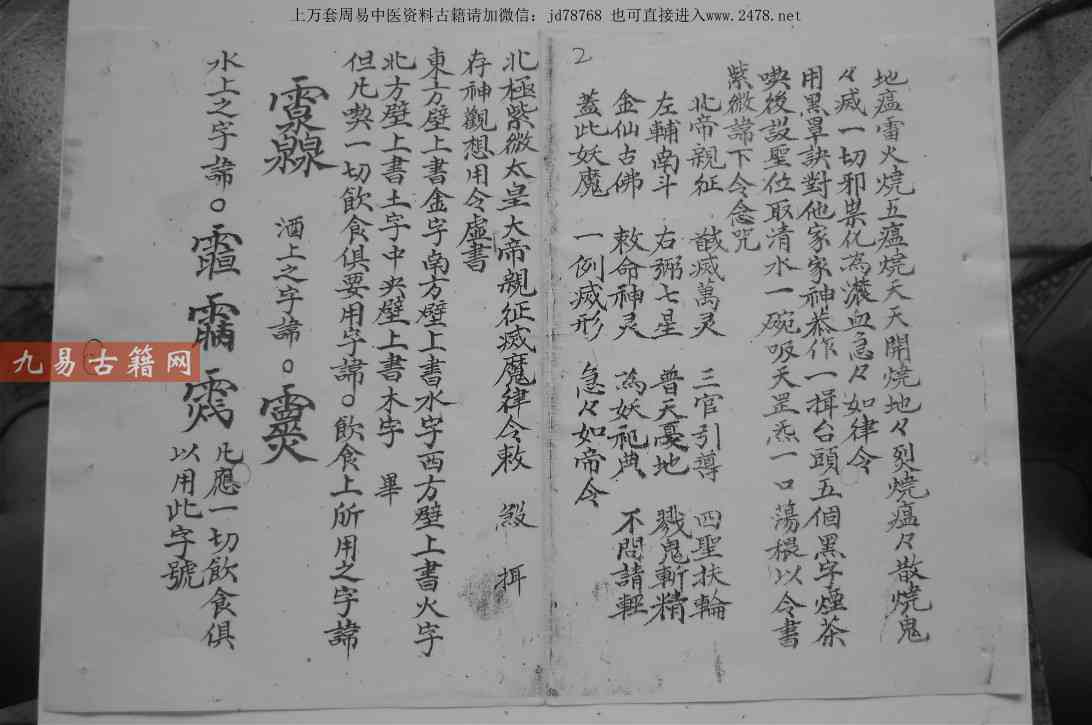 上万套周易中医资料古籍请加微信：jd78768 也可直接进入www.2478.net
地瘟雷火燒五瘟燒天天開燒地々烈燒瘟々散燒鬼
々滅一切邪祟化為濃血急々如律令
用黑罩訣對他家家神恭作一揖台頭五個黑字煙茶
喫後設聖位取清水一碗吸天罡炁一口蕩穢以令書
紫微諱下令念咒
北帝親征 馘滅萬灵 三官引導 四聖扶輪
左輔南斗 右弼七星 普天憂地 戮鬼斬精
金仙古佛 敕命神灵 為妖祀典 不問請輕
蓋此妖魔 一例滅形 急々如帝令
2
北極紫微太皇大帝親征滅魔律令敕 煞 搿
存神觀想用令虛書
東方壁上書金字南方壁上書水字西方壁上書火字
北方壁上書土字中央壁上書木字 畢
但凡喫一切飲食俱要用字諱。飲食上所用之字諱
酒上之字諱。
水上之字諱。
凡應一切飲食俱
以用此字號
九易古籍网